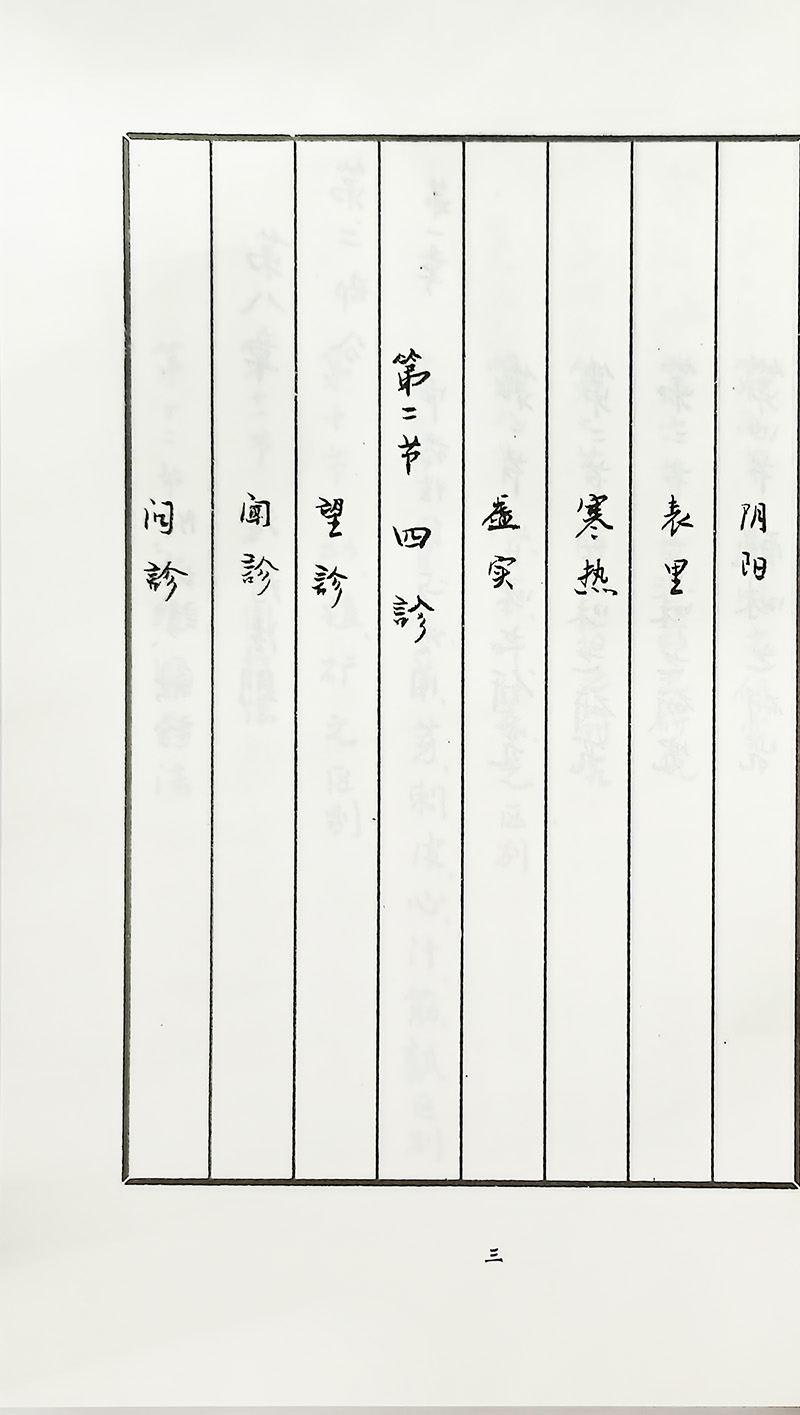 阴阳
表里
寒热
虚实
第二节 四診
望診
闻診
问診
三